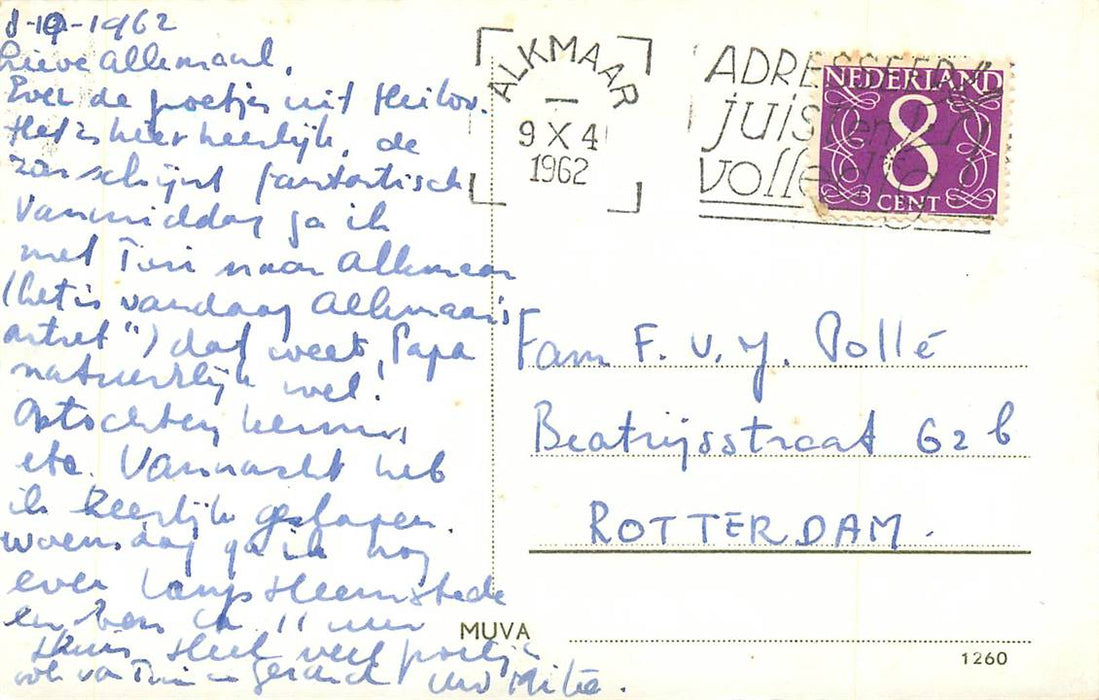 8-10-1962
Lieve allemaal,
Even de groetjes uit Heiloo.
Het is hier heerlijk, de
zon schijnt fantastisch
Vanmiddag ga ik
met Tini naar Alkmaar
(het is vandaag Alkmaars
ontzet") dat weet Papa
natuurlijk wel!
Optochten kermis
etc. Vannacht heb
ik heerlijk geslapen.
Woensdag ga ik nog
even langs Heemstede
en ben om 11 uur
thuis. Heel veel groetjes
ook van Tini en Gerard
ALKMAAR
9 X 4
1962
ADRESSEER
juist en
volledig
NEDERLAND
8
CENT
Fam F. v. J. Pollé
Beatrijsstraat 62 b
ROTTERDAM.
MUVA
1260